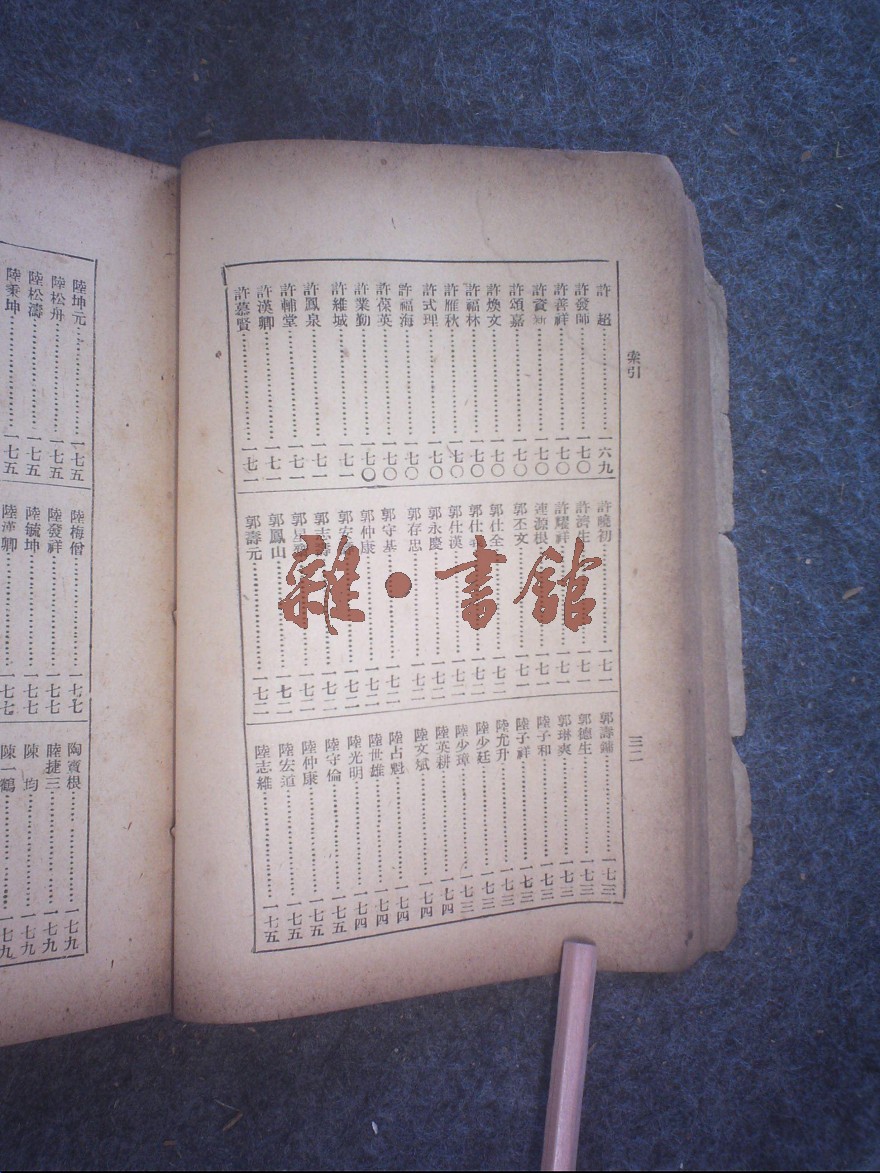 索引
三二
許　超…………一六九
許發師…………一七〇
許善祥…………一七〇
許…………一七〇
許頌嘉…………一七〇
許煥文…………一七〇
許福林…………一七〇
許雁秋…………一七〇
許式理…………一七〇
許福海…………一七〇
許葆英…………一七〇
許業勤…………一七〇
許維城…………一七一
許鳳泉…………一七一
許輔堂…………一七一
許漢卿…………一七一
許慕賢…………一七一
許曉初…………一七一
許濟生…………一七一
許耀祥…………一七一
連源根…………一七一
郭丕文…………一七一
郭仕全…………一七二
郭仕…………一七二
郭仕漢…………一七二
郭永慶…………一七二
郭存忠…………一七二
郭守基…………一七二
郭仲康…………一七二
郭安…………一七二
郭志…………一七二
郭…………一七二
郭鳳山…………一七二
郭壽元…………一七二
郭壽鏞…………一七三
郭德生…………一七三
郭琳爽…………一七三
陸子和…………一七三
陸子祥…………一七三
陸尤升…………一七三
陸少廷…………一七三
陸少璋…………一七三
陸英耕…………一七四
陸文斌…………一七四
陸占魁…………一七四
陸世雄…………一七四
陸光明…………一七四
陸守倫…………一七五
陸仲康…………一七五
陸宏道…………一七五
陸志維…………一七五
陸坤元…………一七五
陸松舟…………一七五
陸松濤…………一七五
陸秉坤…………一七五
陸梅僧…………一七七
陸發祥…………一七七
陸毓坤…………一七七
陸漢卿…………一七七
陶寶根…………一七九
睦捷三…………一七九
陳　均…………一七九
陳一鶴…………一七九
雜·書館